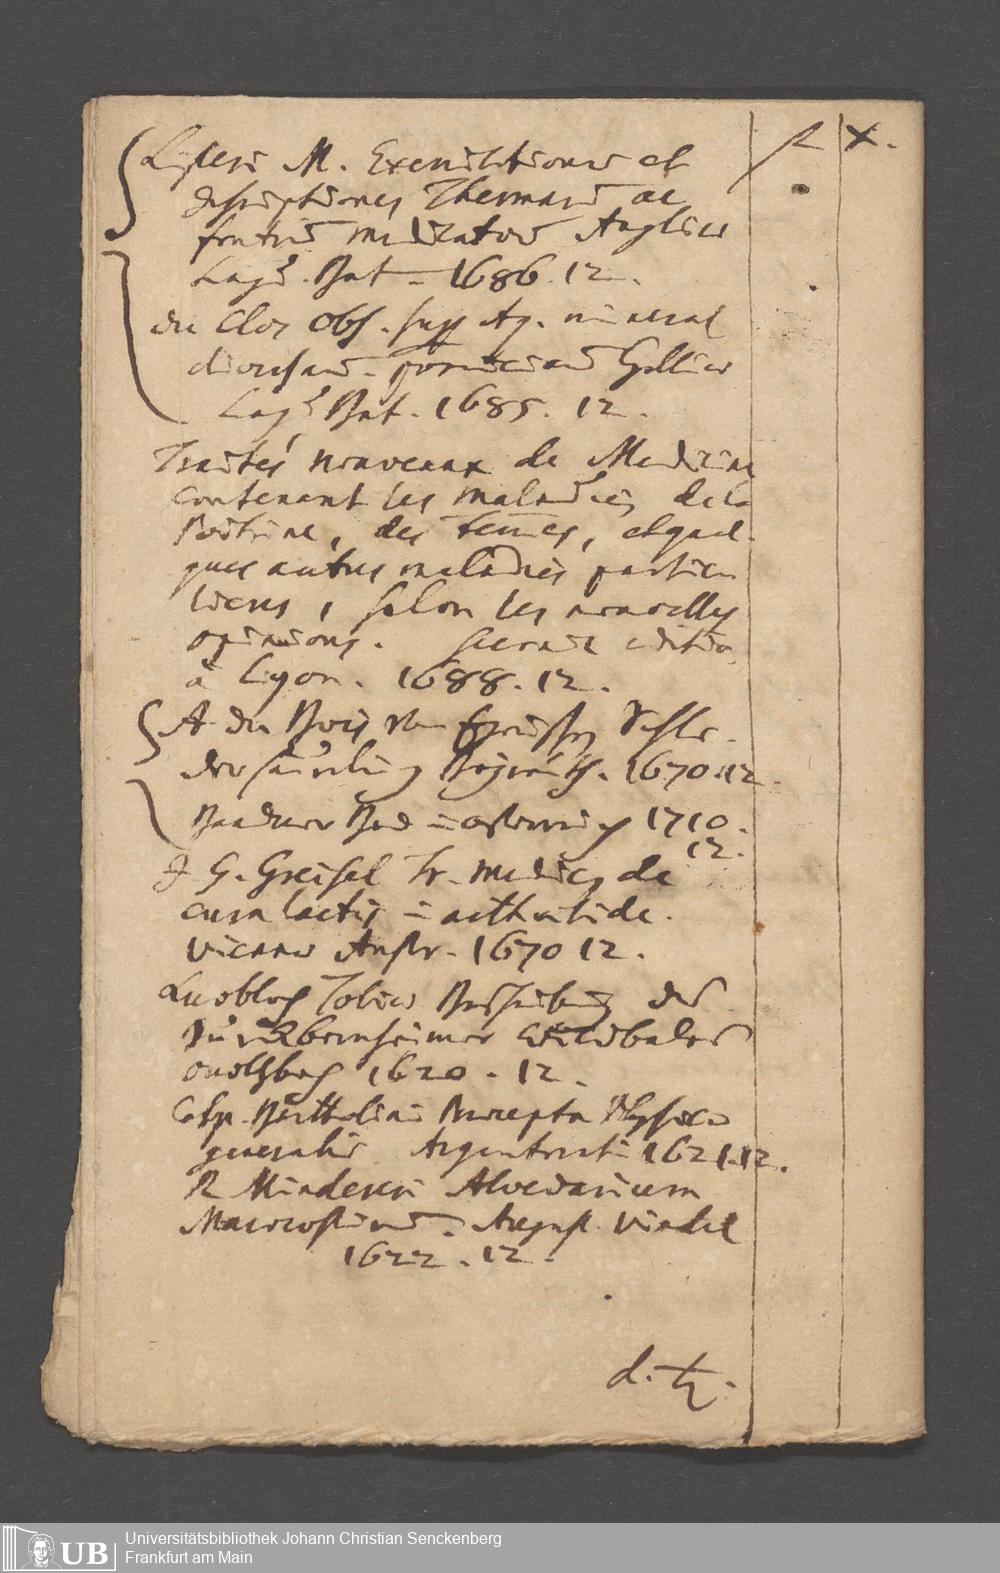 Listeri M. Exercitationes et
descriptiones Thermarū ac
fontiū medicatorū Angliæ
Lugd. Bat. 1686. 12.
du Clos Obs. sup. Aq. mineral
diversarū provinciarū Galliæ
Lugd Bat. 1685. 12.
Traités nouveaux de Medecine
contenant les maladies de la
Poitrine, des femmes, et quel-
ques autres maladies particu
lieres, selon les nouvelles
opinions. seconde edition
à Lyon. 1688. 12.
A. du Bois Von
1670. 12.
Baadner Bad in oesterreich 1710.
12.
J G. Greisel Tr. medicq de
cura lactis in arthritide.
Viennæ Austr. 1670 12.
Knobloch Tobiæ Beschreibung des
Burckbernheimer Wildbades
onoltzbach 1620. 12.
Casp. Bartholini Præcepta Physicæ
generalis Argentorati 1621. 12.
R Mindereri Aloedarium
Marocostinū. August. Vindel
1622. 12.
d. ♄.
R x.
UB
Universitätsbibliothek Johann Christian Senckenberg
Frankfurt am Main